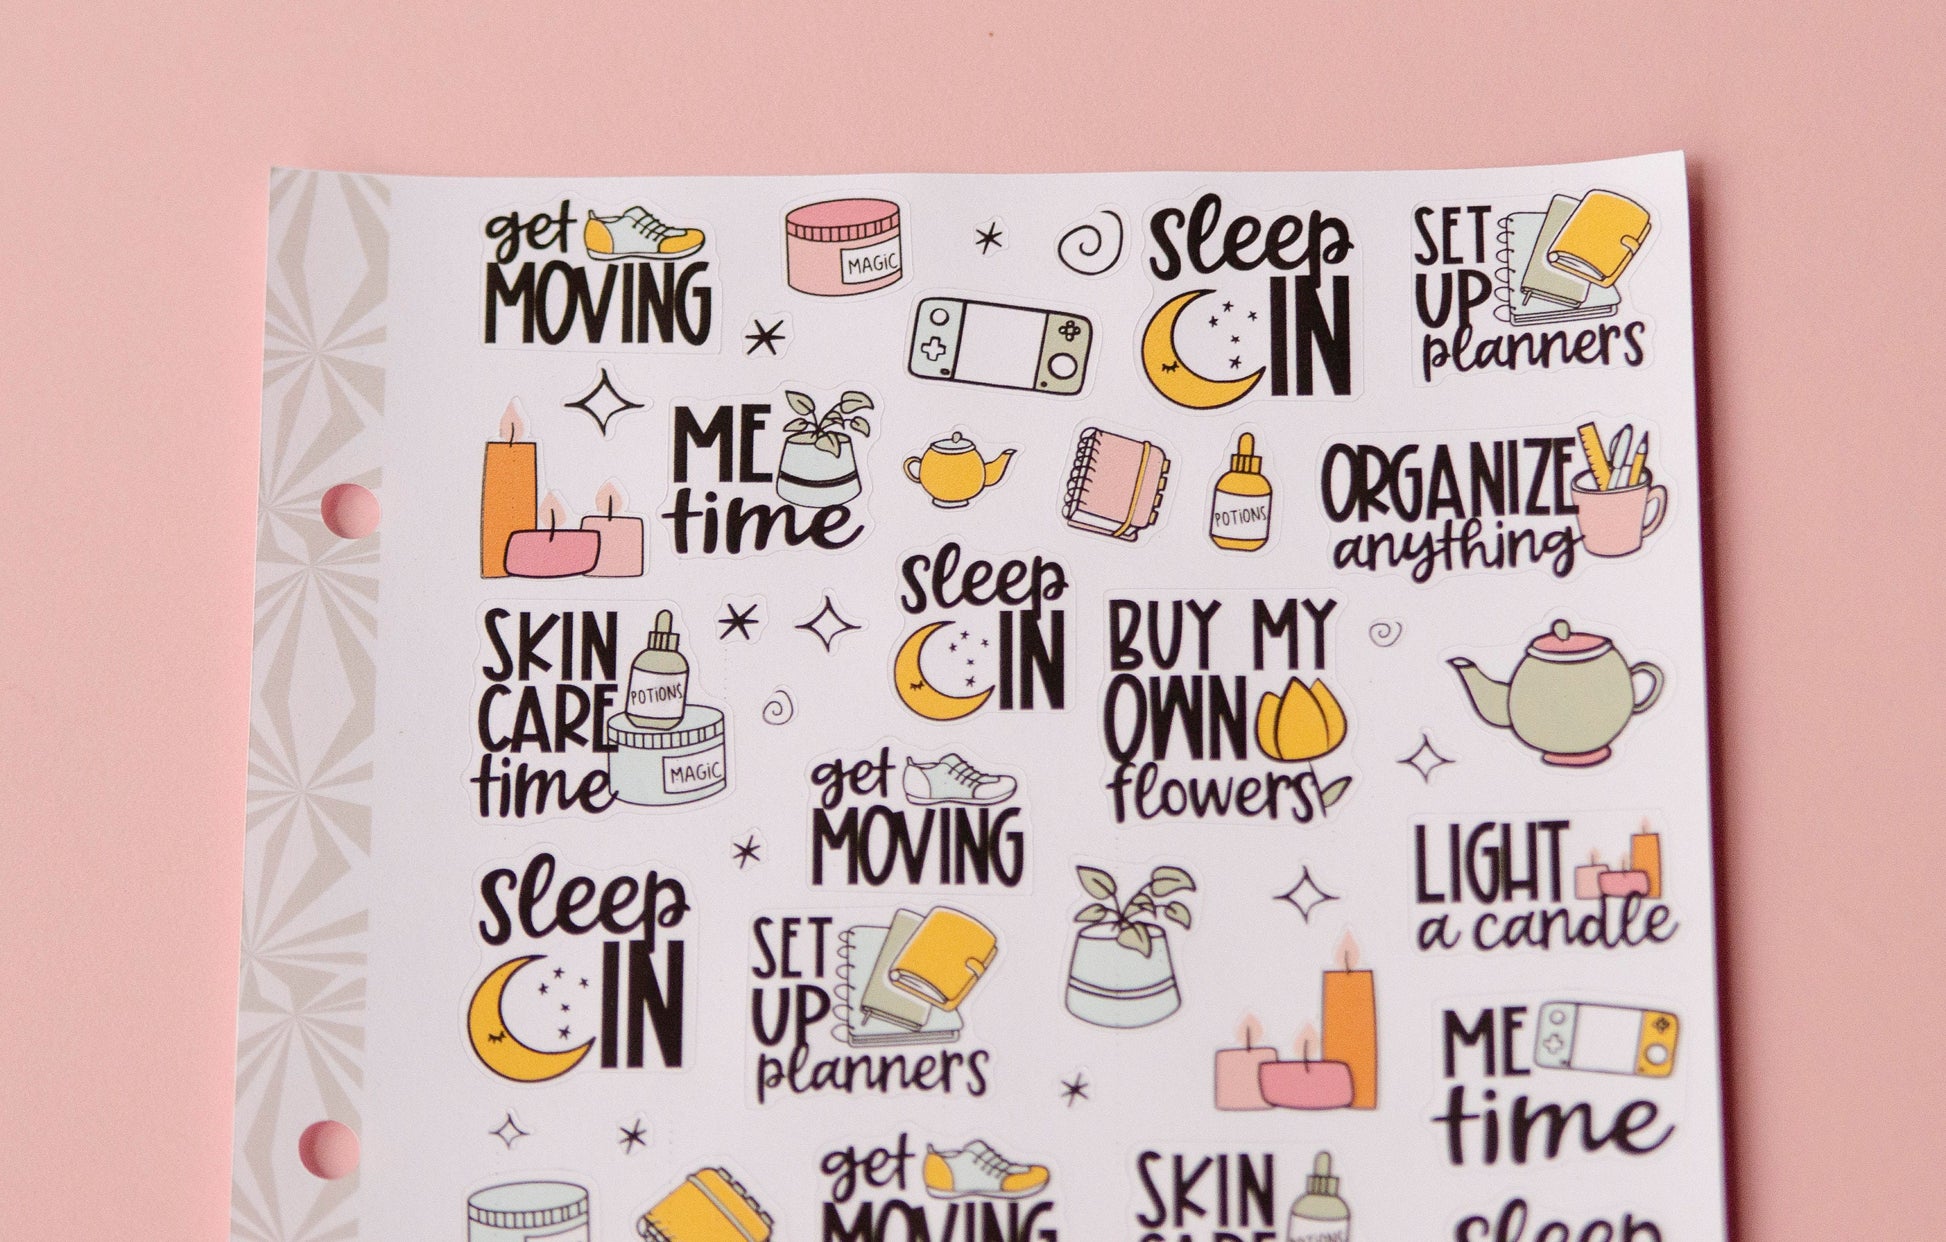 get
MOVING
MAGiC
sleep
IN
SET
UP
planners
ME
time
POTiONS
ORGANIZE
anything
SKIN
CARE
time
POTiONS
MAGiC
sleep
IN
BUY MY
OWN
flowers
get
MOVING
LIGHT
a candle
sleep
IN
SET
UP
planners
ME
time
get
MOVING
SKIN
CARE
POTiONS
sleep